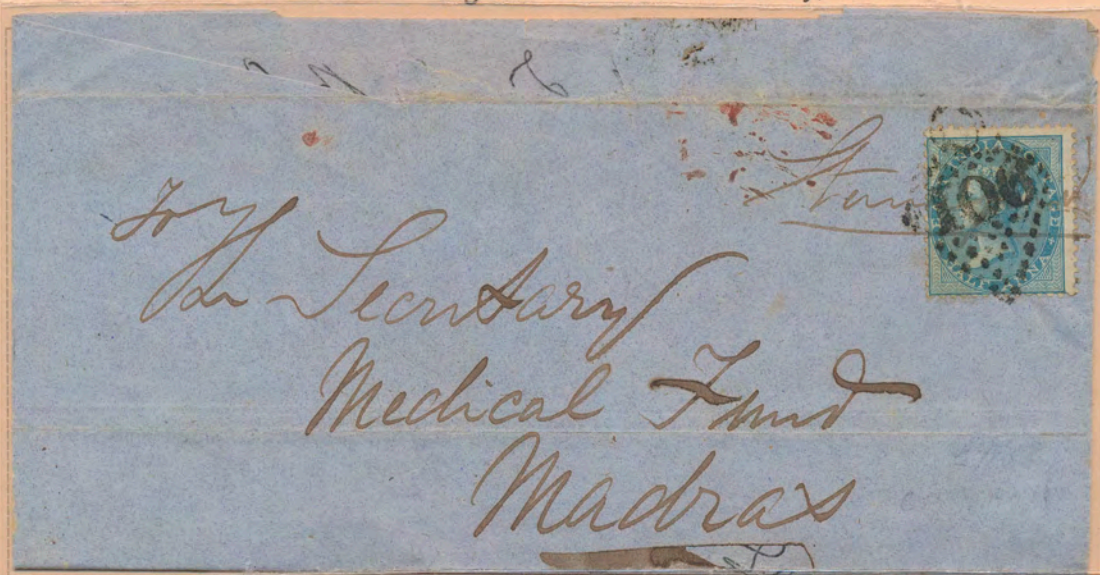 To
The Secretary
Medical Fund
Madras
106